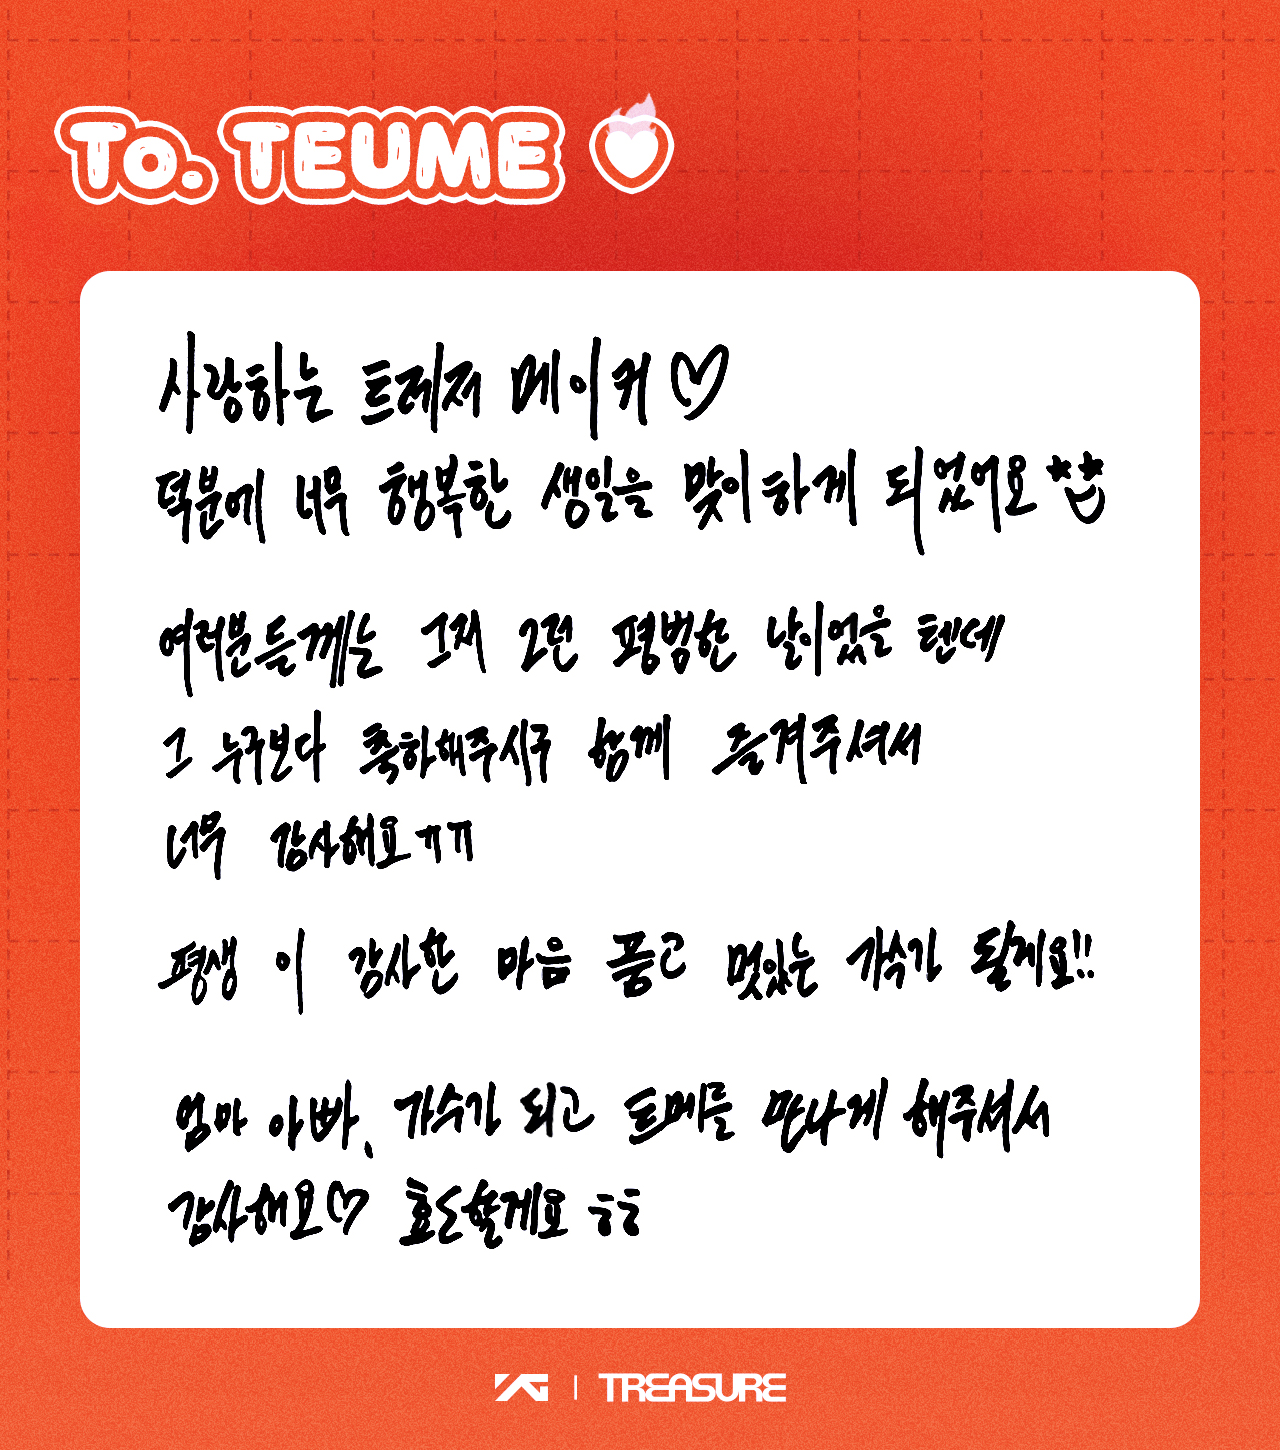 To. TEUME
사랑하는 트레저 메이커 ♡
덕분에 너무 행복한 생일을 맞이하게 되었어요
여러분들께는 그저 그런 평범한 날이었을 텐데
그 누구보다 축하해주시구 함께 즐겨주셔서
너무 감사해요ㅠㅠ
평생 이 감사한 마음 품고 멋있는 가수가 될게요!!
엄마 아빠, 가수가 되고 트메를 만나게 해주셔서
감사해요♡ 효도할게요 ㅎㅎ
YG | TREASURE